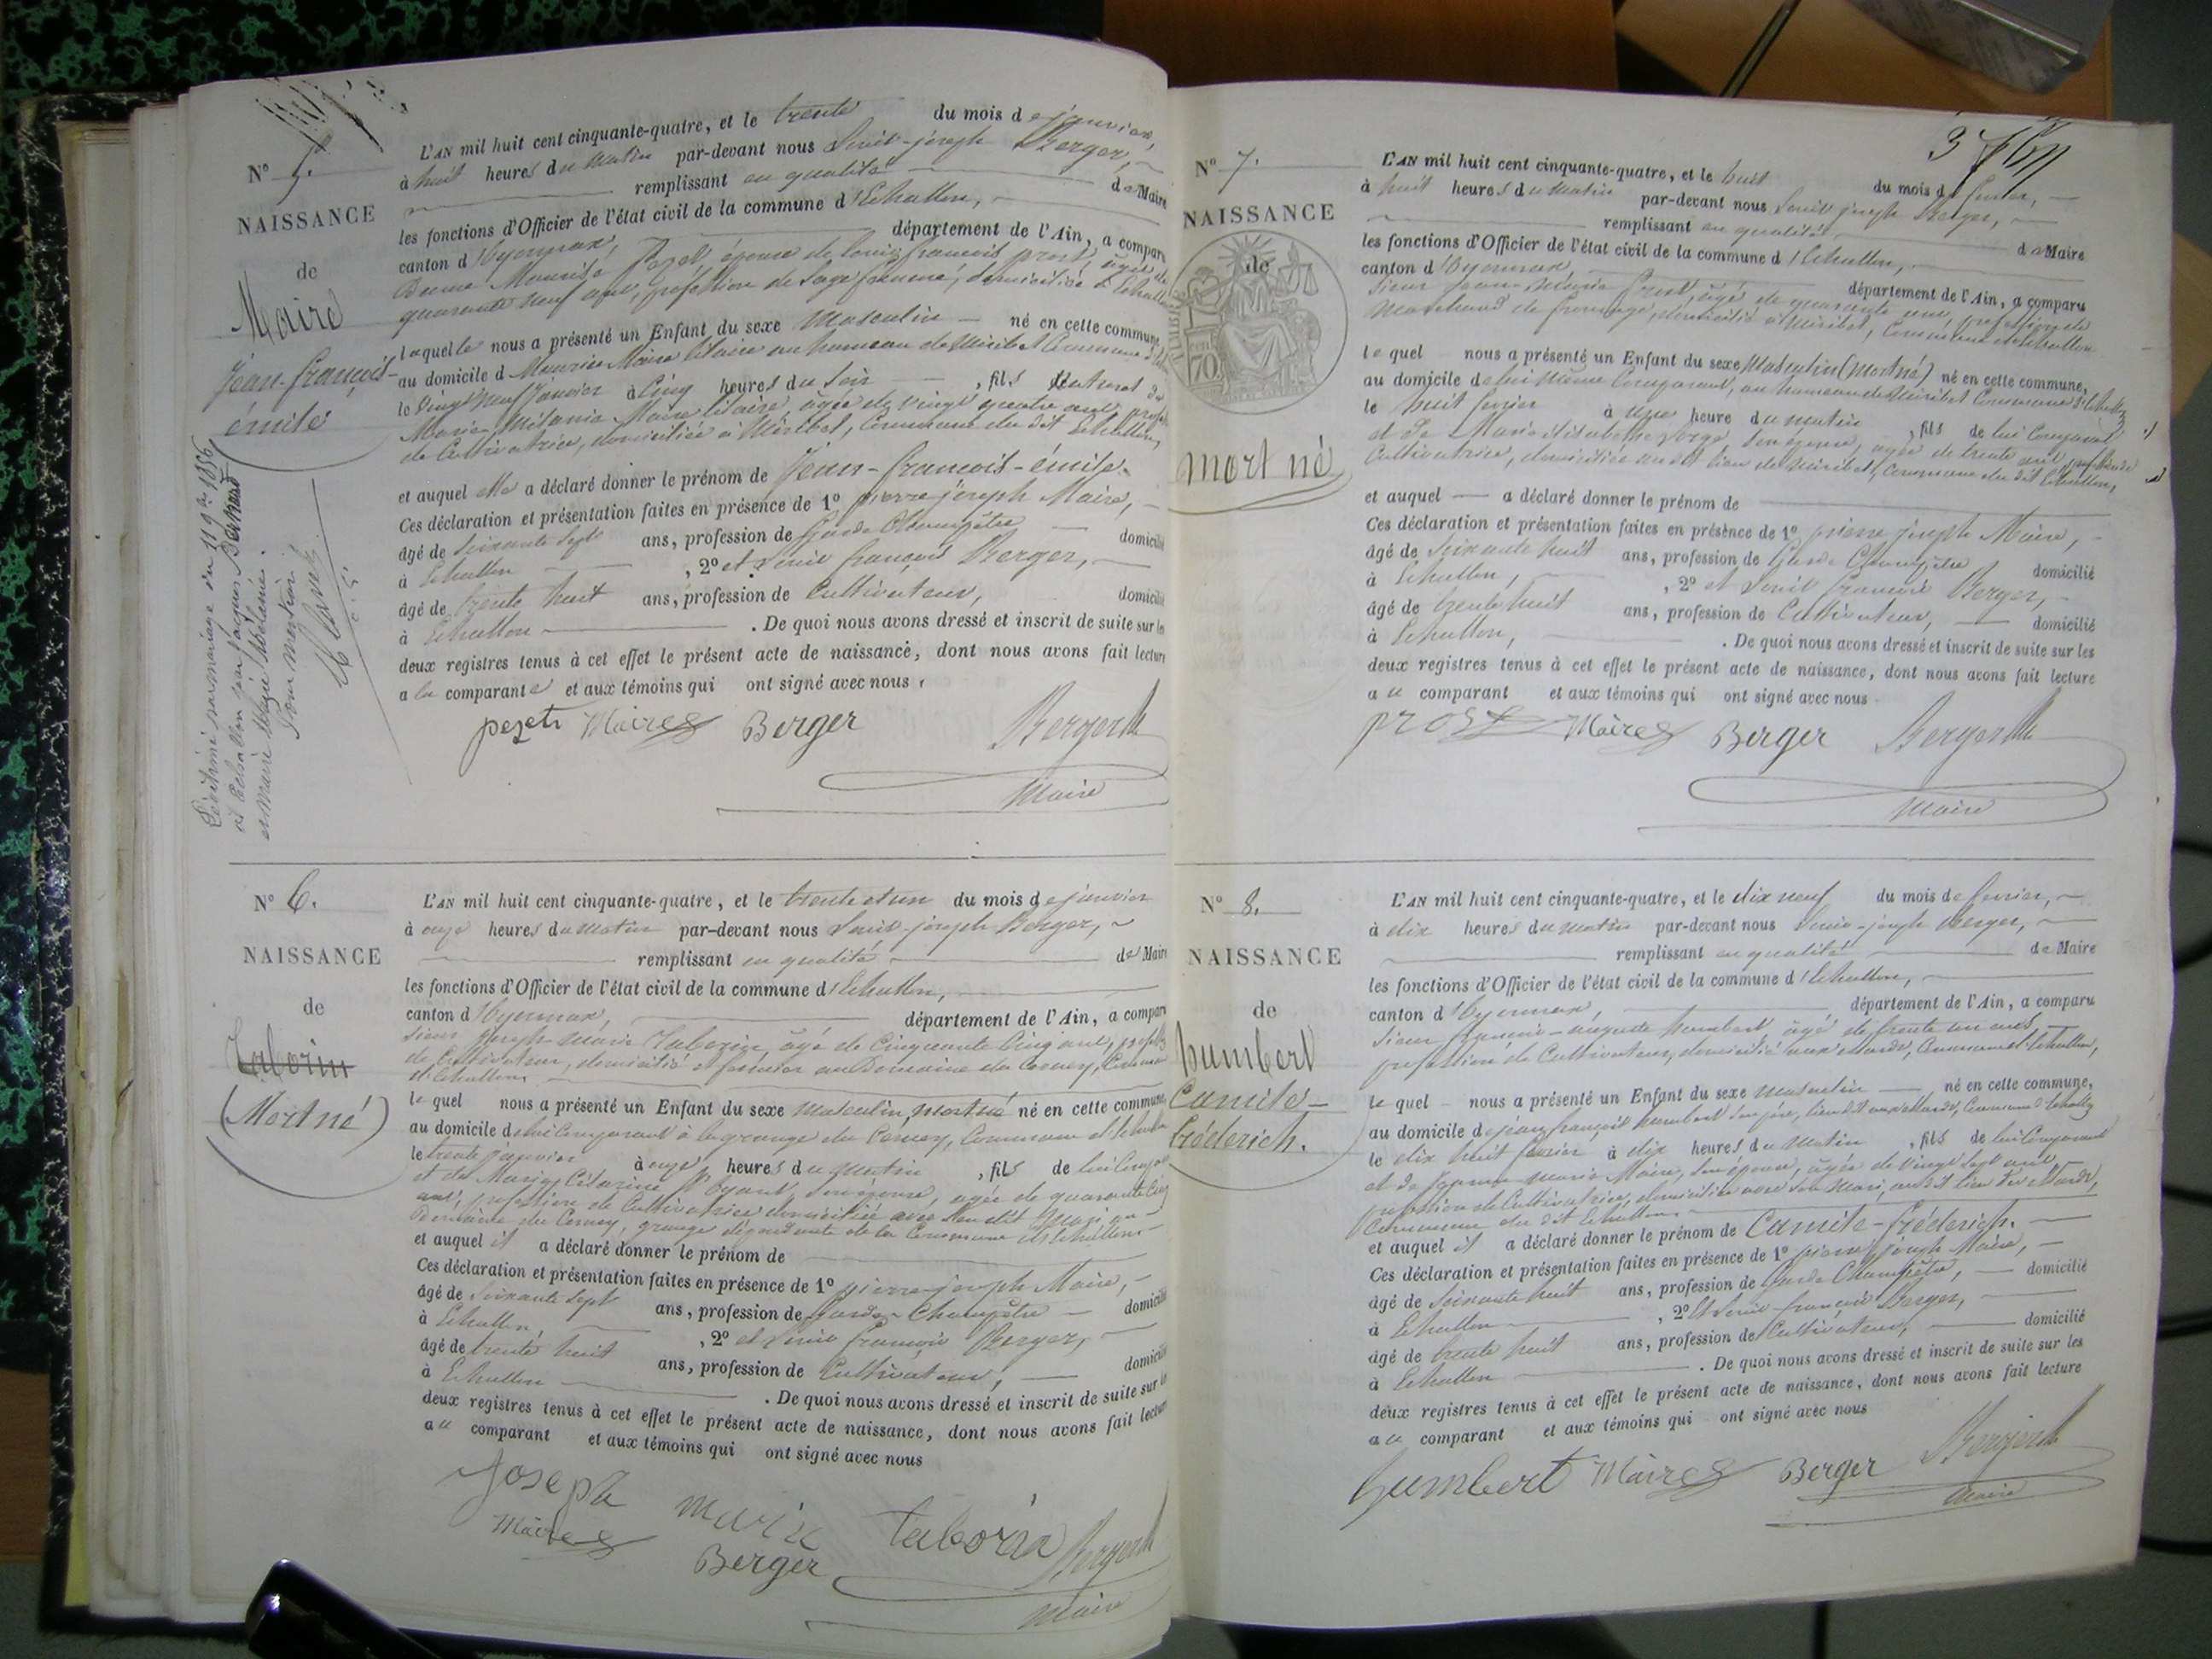 N° 5.
NAISSANCE
de
Maire
Jean-françois-
émile
Légitimé par mariage du 11 9bre 1886
Pour mention
L'AN mil huit cent cinquante-quatre, et le trente du mois de janvier,
à huit heures du matin par-devant nous Louis-joseph Berger,
remplissant en qualité de Maire
les fonctions d'Officier de l'état civil de la commune d'Echallon,
canton d'Oyonnax, département de l'Ain, a comparu
Dame épouse de Louis françois prost, âgée de
quarante neuf ans, profession de sage femme, domiciliée à Echallon
laquelle nous a présenté un Enfant du sexe Masculin né en cette commune,
au domicile de Maurice Maire au hameau de Miribet Commune
le vingt neuf Janvier à Cinq heures du soir, fils naturel de
Marie Mélanie Maire âgée de vingt quatre ans, profession
de Cultivatrice, domiciliée à Miribet, Commune du dit Echallon,
et auquel elle a déclaré donner le prénom de Jean-françois-émile.
Ces déclaration et présentation faites en présence de 1° pierre joseph Maire,
âgé de soixante sept ans, profession de Garde Champêtre domicilié
à Echallon, 2° et Louis françois Berger,
âgé de trente huit ans, profession de Cultivateur, domicilié
à Echallon. De quoi nous avons dressé et inscrit de suite sur les
deux registres tenus à cet effet le présent acte de naissance, dont nous avons fait lecture
a la comparante et aux témoins qui ont signé avec nous.
Maire Berger Berger
Maire
N° 6.
NAISSANCE
de
Taborin
(Mort né)
L'AN mil huit cent cinquante-quatre, et le trente et un du mois de janvier
à onze heures du matin par-devant nous Louis-joseph Berger,
remplissant en qualité de Maire
les fonctions d'Officier de l'état civil de la commune d'Echallon,
canton d'Oyonnax, département de l'Ain, a comparu
sieur joseph-marie Taborin, âgé de cinquante cinq ans, profession
de Cultivateur, domicilié et fermier au Domaine du Cernay, Commune
d'Echallon
lequel nous a présenté un Enfant du sexe masculin, mort né né en cette commune,
au domicile de lui Comparant à la grange du Cernay, Commune d'Echallon
le trente janvier à onze heures du matin, fils de lui Comparant
et de Marie son épouse, âgée de quarante cinq
ans, profession de Cultivatrice domiciliée avec son dit Mari au
Domaine du Cernay, grange dépendante de la Commune d'Echallon
et auquel il a déclaré donner le prénom de
Ces déclaration et présentation faites en présence de 1° pierre joseph Maire,
âgé de soixante sept ans, profession de Garde Champêtre domicilié
à Echallon, 2° et Louis françois Berger,
âgé de trente huit ans, profession de Cultivateur, domicilié
à Echallon. De quoi nous avons dressé et inscrit de suite sur les
deux registres tenus à cet effet le présent acte de naissance, dont nous avons fait lecture
au comparant et aux témoins qui ont signé avec nous
Joseph marie taborin
Maire Berger Berger
Maire
N° 7.
NAISSANCE
de
mort né
L'AN mil huit cent cinquante-quatre, et le huit du mois de fevrier,
à huit heures du matin par-devant nous Louis joseph Berger,
remplissant en qualité de Maire
les fonctions d'Officier de l'état civil de la commune d'Echallon,
canton d'Oyonnax, département de l'Ain, a comparu
sieur Jean-Marie Prost, âgé de quarante ans, profession de
Marchand de fromage, domicilié à Miribet, Commune d'Echallon
lequel nous a présenté un Enfant du sexe Masculin (mort né) né en cette commune,
au domicile de lui même Comparant, au hameau de Miribet Commune d'Echallon
le huit fevrier à une heure du matin, fils de lui Comparant
et de Marie son épouse, âgée de trente ans, profession de
Cultivatrice, domiciliée au dit lieu de Miribet, Commune du dit Echallon,
et auquel a déclaré donner le prénom de
Ces déclaration et présentation faites en présence de 1° pierre joseph Maire,
âgé de soixante huit ans, profession de Garde Champêtre domicilié
à Echallon, 2° et Louis françois Berger,
âgé de trente huit ans, profession de Cultivateur, domicilié
à Echallon. De quoi nous avons dressé et inscrit de suite sur les
deux registres tenus à cet effet le présent acte de naissance, dont nous avons fait lecture
au comparant et aux témoins qui ont signé avec nous
prost Maire Berger Berger
Maire
N° 8.
NAISSANCE
de
humbert
Camile-
fréderich.
L'AN mil huit cent cinquante-quatre, et le dix neuf du mois de fevrier,
à dix heures du matin par-devant nous Louis-joseph Berger,
remplissant en qualité de Maire
les fonctions d'Officier de l'état civil de la commune d'Echallon,
canton d'Oyonnax, département de l'Ain, a comparu
Sieur françois-auguste humbert, âgé de trente un ans,
profession de Cultivateur, domicilié aux Commune d'Echallon,
lequel nous a présenté un Enfant du sexe masculin né en cette commune,
au domicile de jean françois humbert son père, lieu dit Commune d'Echallon
le dix huit fevrier à dix heures du matin, fils de lui Comparant
et de marie Maire, son épouse, âgée de vingt sept ans
profession de Cultivatrice, domiciliée avec son mari, au dit lieu
Commune du dit Echallon
et auquel il a déclaré donner le prénom de Camile-fréderich.
Ces déclaration et présentation faites en présence de 1° pierre joseph Maire,
âgé de soixante huit ans, profession de Garde Champêtre, domicilié
à Echallon, 2° Et Louis françois Berger,
âgé de trente huit ans, profession de Cultivateur, domicilié
à Echallon. De quoi nous avons dressé et inscrit de suite sur les
deux registres tenus à cet effet le présent acte de naissance, dont nous avons fait lecture
au comparant et aux témoins qui ont signé avec nous
humbert Maire Berger Berger
Maire